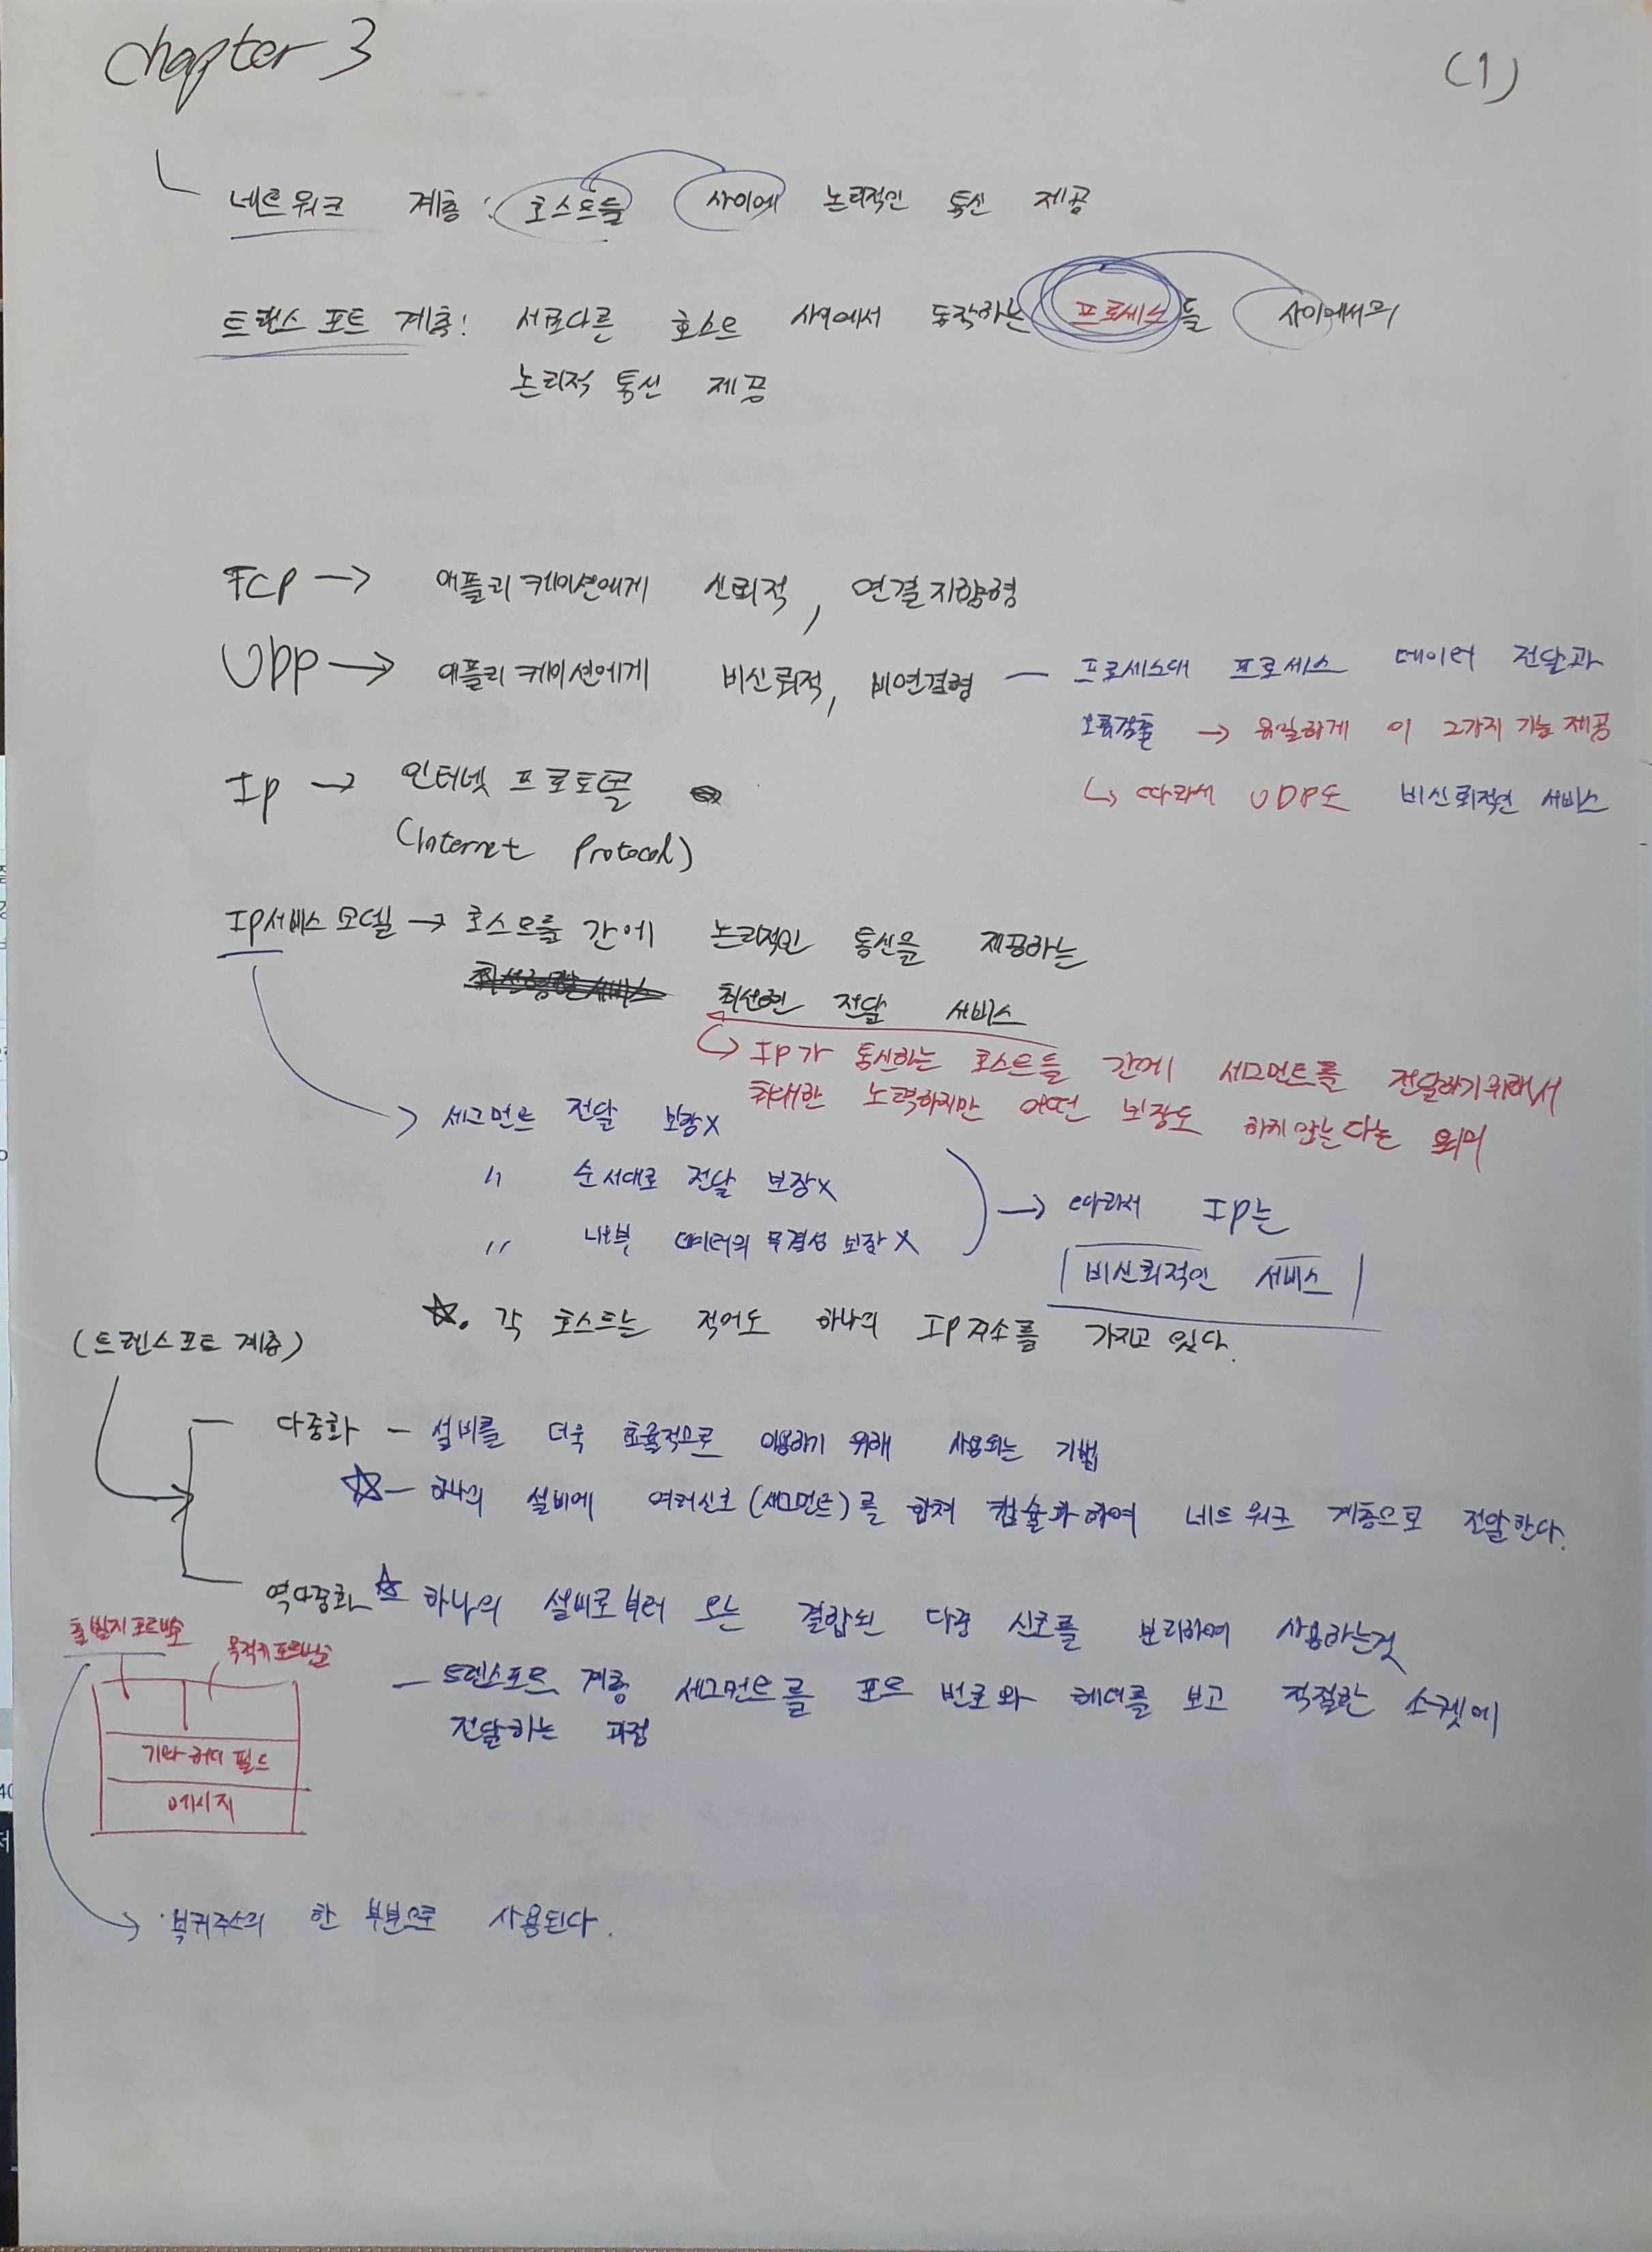 chapter 3
(1)
네트워크 계층 : 호스트들 사이에 논리적인 통신 제공
트랜스 포트 계층: 서로다른 호스트 사이에서 동작하는 프로세스들 사이에서의
논리적 통신 제공
TCP → 애플리케이션에게 신뢰적, 연결지향형
UDP → 애플리케이션에게 비신뢰적, 비연결형 — 프로세스대 프로세스 데이터 전달과
오류검출 → 유일하게 이 2가지 기능 제공
↳ 따라서 UDP도 비신뢰적인 서비스
Ip → 인터넷 프로토콜
(Internet Protocol)
Ip서비스 모델 → 호스트들 간에 논리적인 통신을 제공하는
최선형 전달 서비스
↳ Ip가 통신하는 호스트들 간에 세그먼트를 전달하기위해서
최대한 노력하지만 어떤 보장도 하지 않는다는 의미
세그먼트 전달 보장X
〃 순서대로 전달 보장X
〃 내부 데이터의 무결성 보장X
→ 따라서 Ip는
비신뢰적인 서비스
☆. 각 호스트는 적어도 하나의 Ip주소를 가지고 있다.
(트렌스포트 계층)
다중화 — 설비를 더욱 효율적으로 이용하기 위해 사용되는 기법
☆— 하나의 설비에 여러신호(세그먼트)를 합쳐 캡슐화하여 네트워크 계층으로 전달한다.
역다중화 ☆ 하나의 설비로부터 오는 결합된 다중 신호를 분리하여 사용하는것
— 트렌스포트 계층 세그먼트를 포트 번호와 헤더를 보고 적절한 소켓에
전달하는 과정
출발지 포트번호
목적지 포트번호
기타 헤더 필드
메시지
→ 복귀주소의 한 부분으로 사용된다.